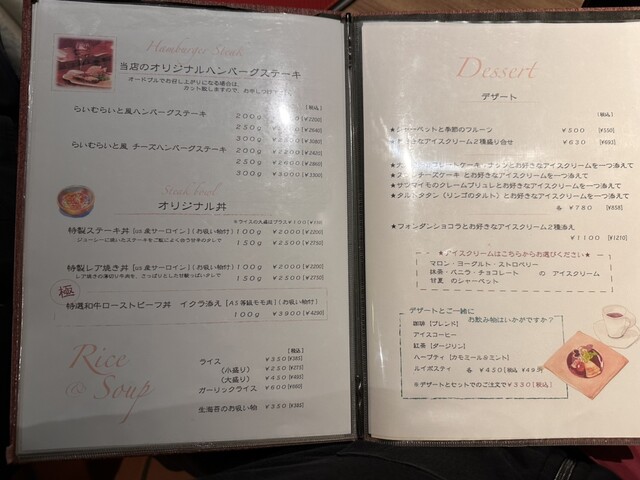 Hamburger Steak
当店のオリジナルハンバーグステーキ
オードブルでお召し上がりになる場合は、
カット致しますので、お申しつけ下さい
[税込]
らいむらいと風ハンバーグステーキ 200g
250g
300g
らいむらいと風 チーズハンバーグステーキ 200g
250g
300g ¥3000 [¥3300]
Steak bowl
オリジナル丼
特製ステーキ丼 [US産サーロイン] [お吸い物付] 100g ¥2000 [¥2200]
ジューシーに焼いたステーキをご飯によく合う甘辛のタレで 150g ¥2500 [¥2750]
特製レア焼き丼 [US産サーロイン] [お吸い物付] 100g ¥2000 [¥2200]
150g ¥2500 [¥2750]
極
特選和牛ローストビーフ丼 イクラ添え [A5等級モモ肉] [お吸い物付]
100g ¥3900 [¥4290]
Rice & Soup
[税込]
ライス ¥350 [¥385]
(小盛り) ¥250 [¥275]
(大盛り) ¥450 [¥495]
ガーリックライス ¥600 [¥660]
生海苔のお吸い物 ¥350 [¥385]
Dessert
デザート
[税込]
★シャーベットと季節のフルーツ ¥500 [¥550]
アイスクリーム2種盛り合せ ¥630 [¥693]
とお好きなアイスクリームを一つ添えて
チーズケーキ とお好きなアイスクリームを一つ添えて
★サツマイモのクレームブリュレとお好きなアイスクリームを一つ添えて
★タルトタタン (リンゴのタルト) とお好きなアイスクリームを一つ添えて
各 ¥780 [¥858]
★フォンダンショコラとお好きなアイスクリーム2種添え
¥1100 [¥1210]
★アイスクリームはこちらからお選びください★
マロン・ヨーグルト・ストロベリー
抹茶・バニラ・チョコレート の アイスクリーム
甘夏 のシャーベット
デザートとご一緒に
お飲み物はいかがですか?
珈琲 [ブレンド]
アイスコーヒー
紅茶 [ダージリン]
ハーブティ [カモミール&ミント]
ルイボスティ 各 ¥450 [税込 ¥495]
※デザートとセットでのご注文で¥330 [税込]